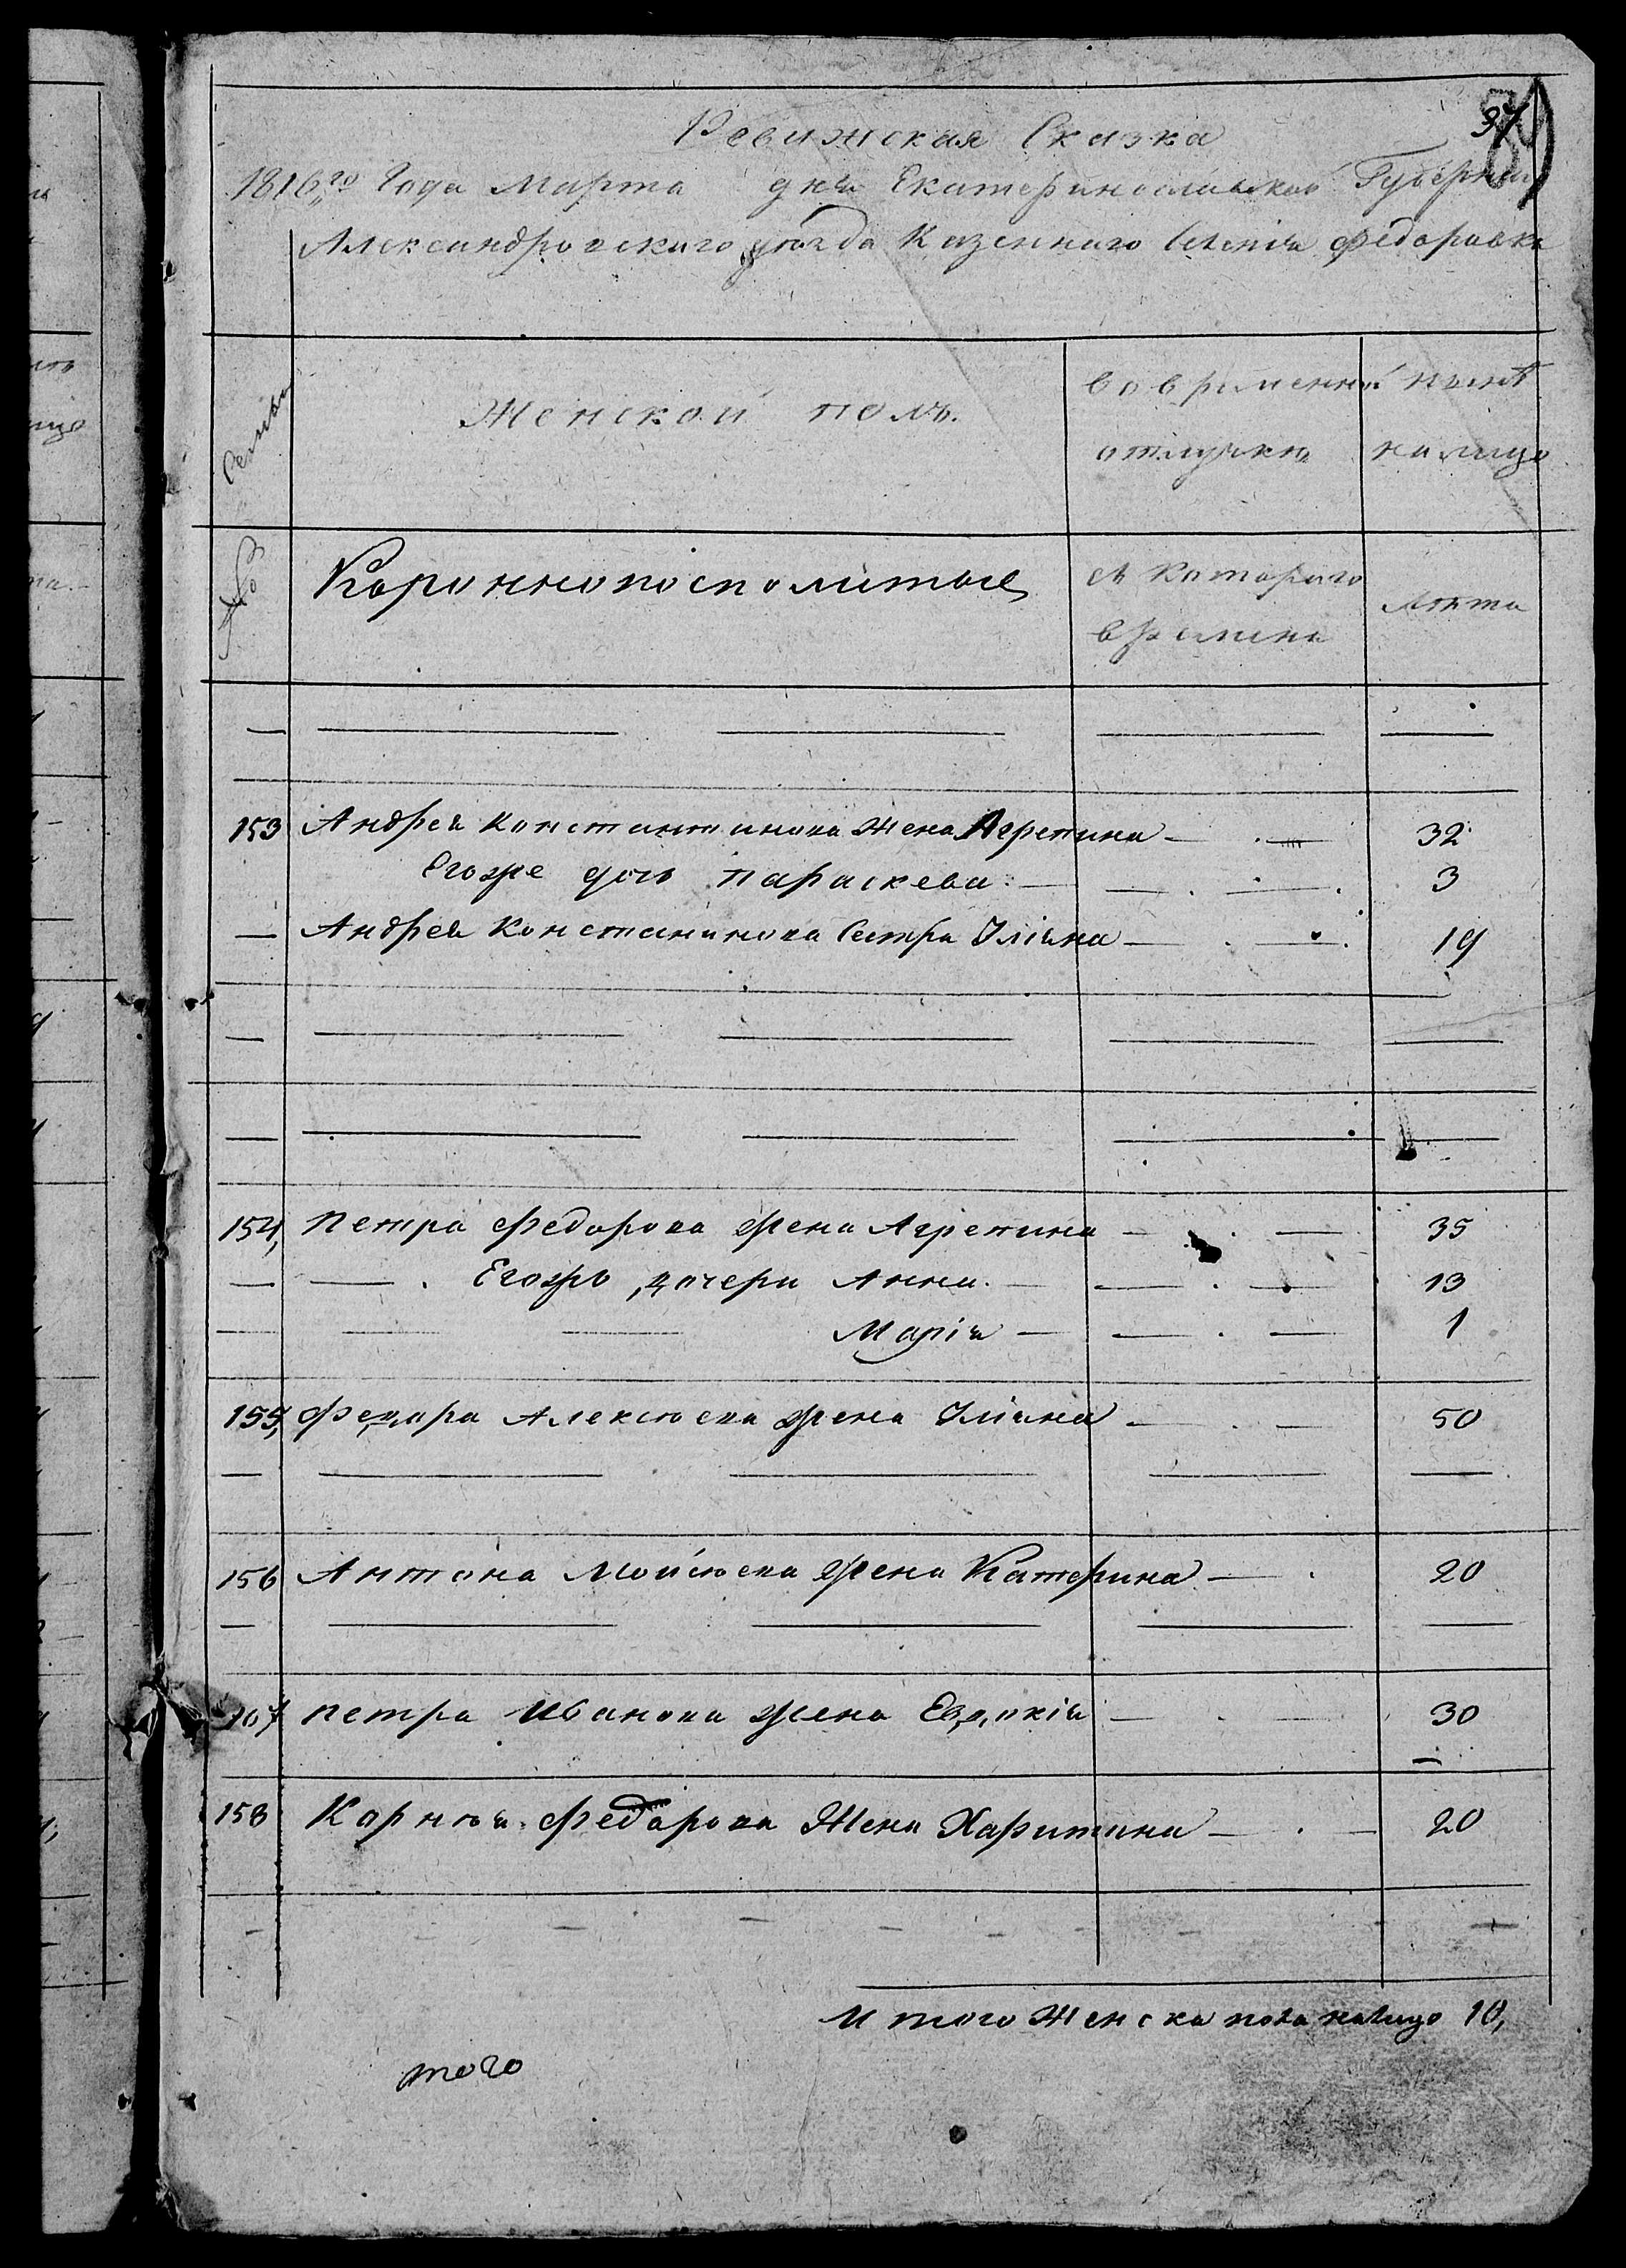 37
Ревижская Сказка
1816го Года Марта дня Екатеринославской Губернии
Александровскаго уѣзда Казеннаго Селенiя Федоровки
Семьи
Женской полъ.
во временной отлучкѣ
ныне на лицо
Короннопосполитые
съ котораго времени
Лѣта
153 Андрея Константинова Жена Агрепина 32
Егоже дочь параскева 3
Андрея Констанинова Сестра Улiяна 19
154, Петра Федорова жена Агрепина 35
Егожъ дочери Анна 13
Марiя 1
155, Федора Алексѣева жена Улiяна 50
156 Антона Мойсѣева жена Катерина 20
157 петра Иванова жена Евдокiя 30
158 Карнѣя Федорова Жена Харитина 20
Итого Женска пола налицо 10,
того